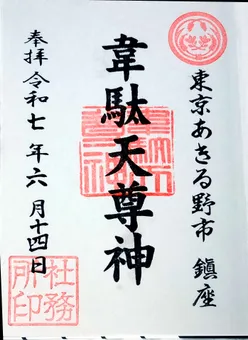 東京あきる野市 鎮座
韋駄天尊神
奉拝 令和七年六月十四日
社務所印